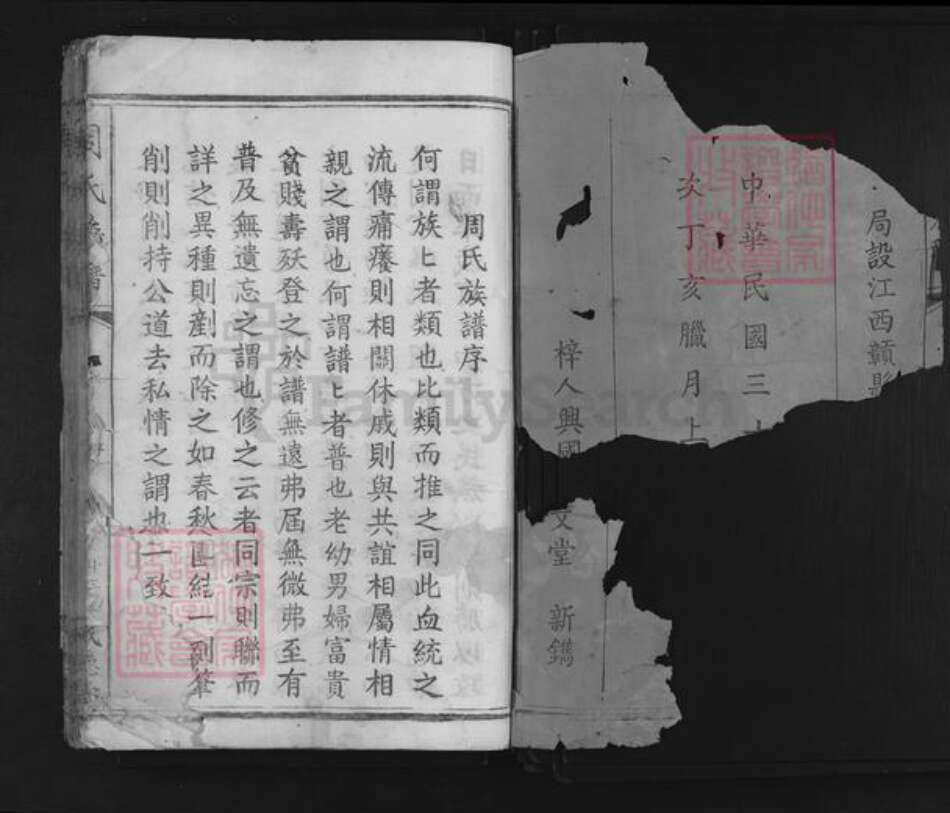 局設江西贛縣
中華民國三十
次丁亥臘月上
梓人興國
文堂 新鐫
周氏族譜序
何謂族上者類也比類而推之同此血統之
流傳痛癢則相關休戚則與共誼相屬情相
親之謂也何謂譜上者普也老幼男婦富貴
貧賤壽殀登之於譜無遠弗屆無微弗至有
普及無遺忘之謂也修之云者同宗則聯而
詳之異種則剷而除之如春秋團結一到筆
削則削持公道去私情之謂也一致
FamilySearch